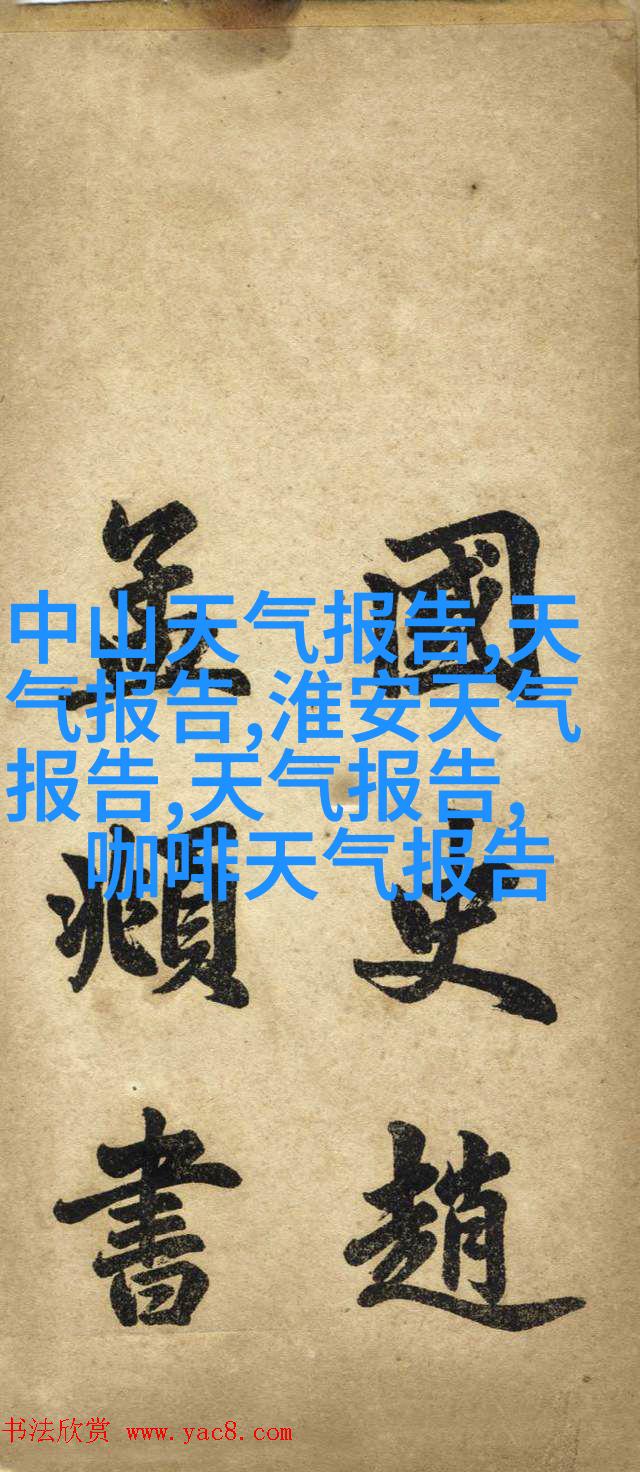 中山天气报告,天
气报告,淮安天气
报告,天气报告,
咖啡天气报告
國史趙
孟頫書
书法欣赏 www.yac8.com